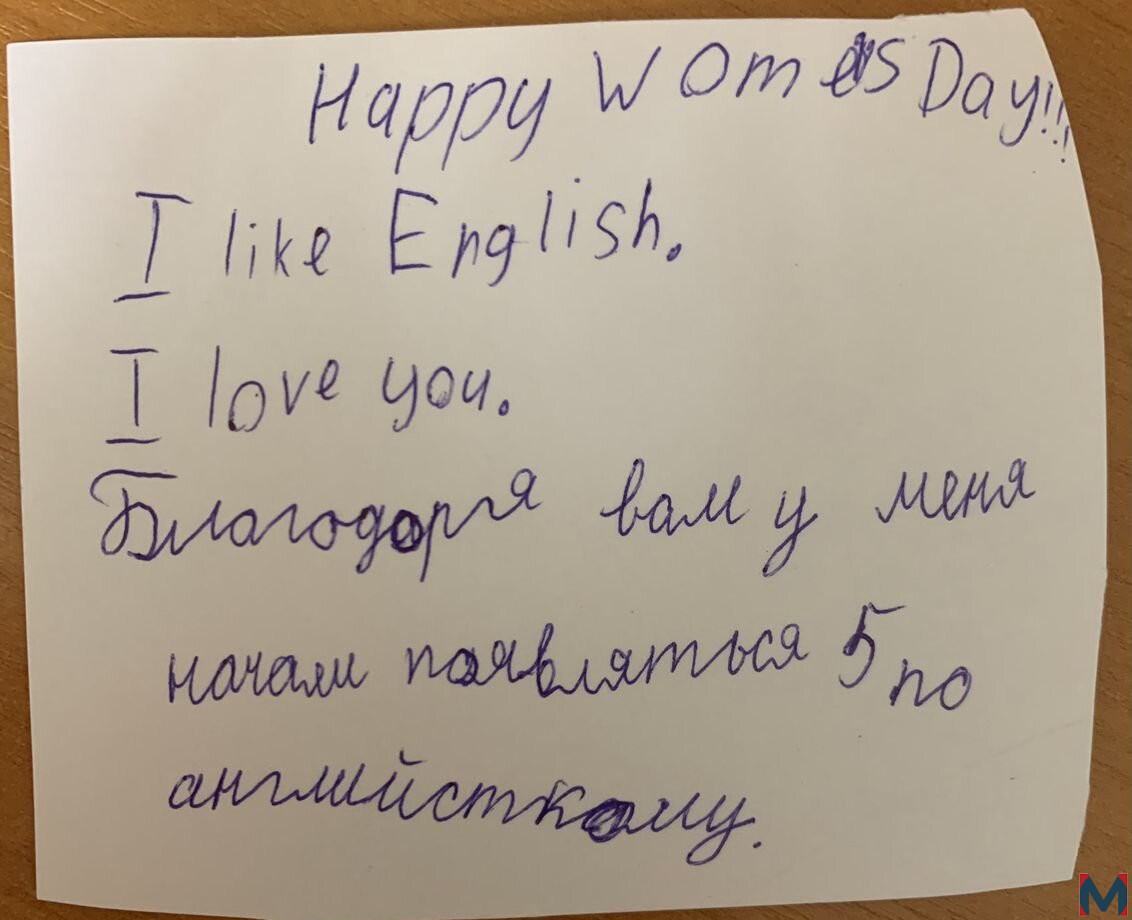 Happy Womens Day!!!
I like English.
I love you.
Благодоря вам у меня
начали появляться 5 по
английсткому.
M